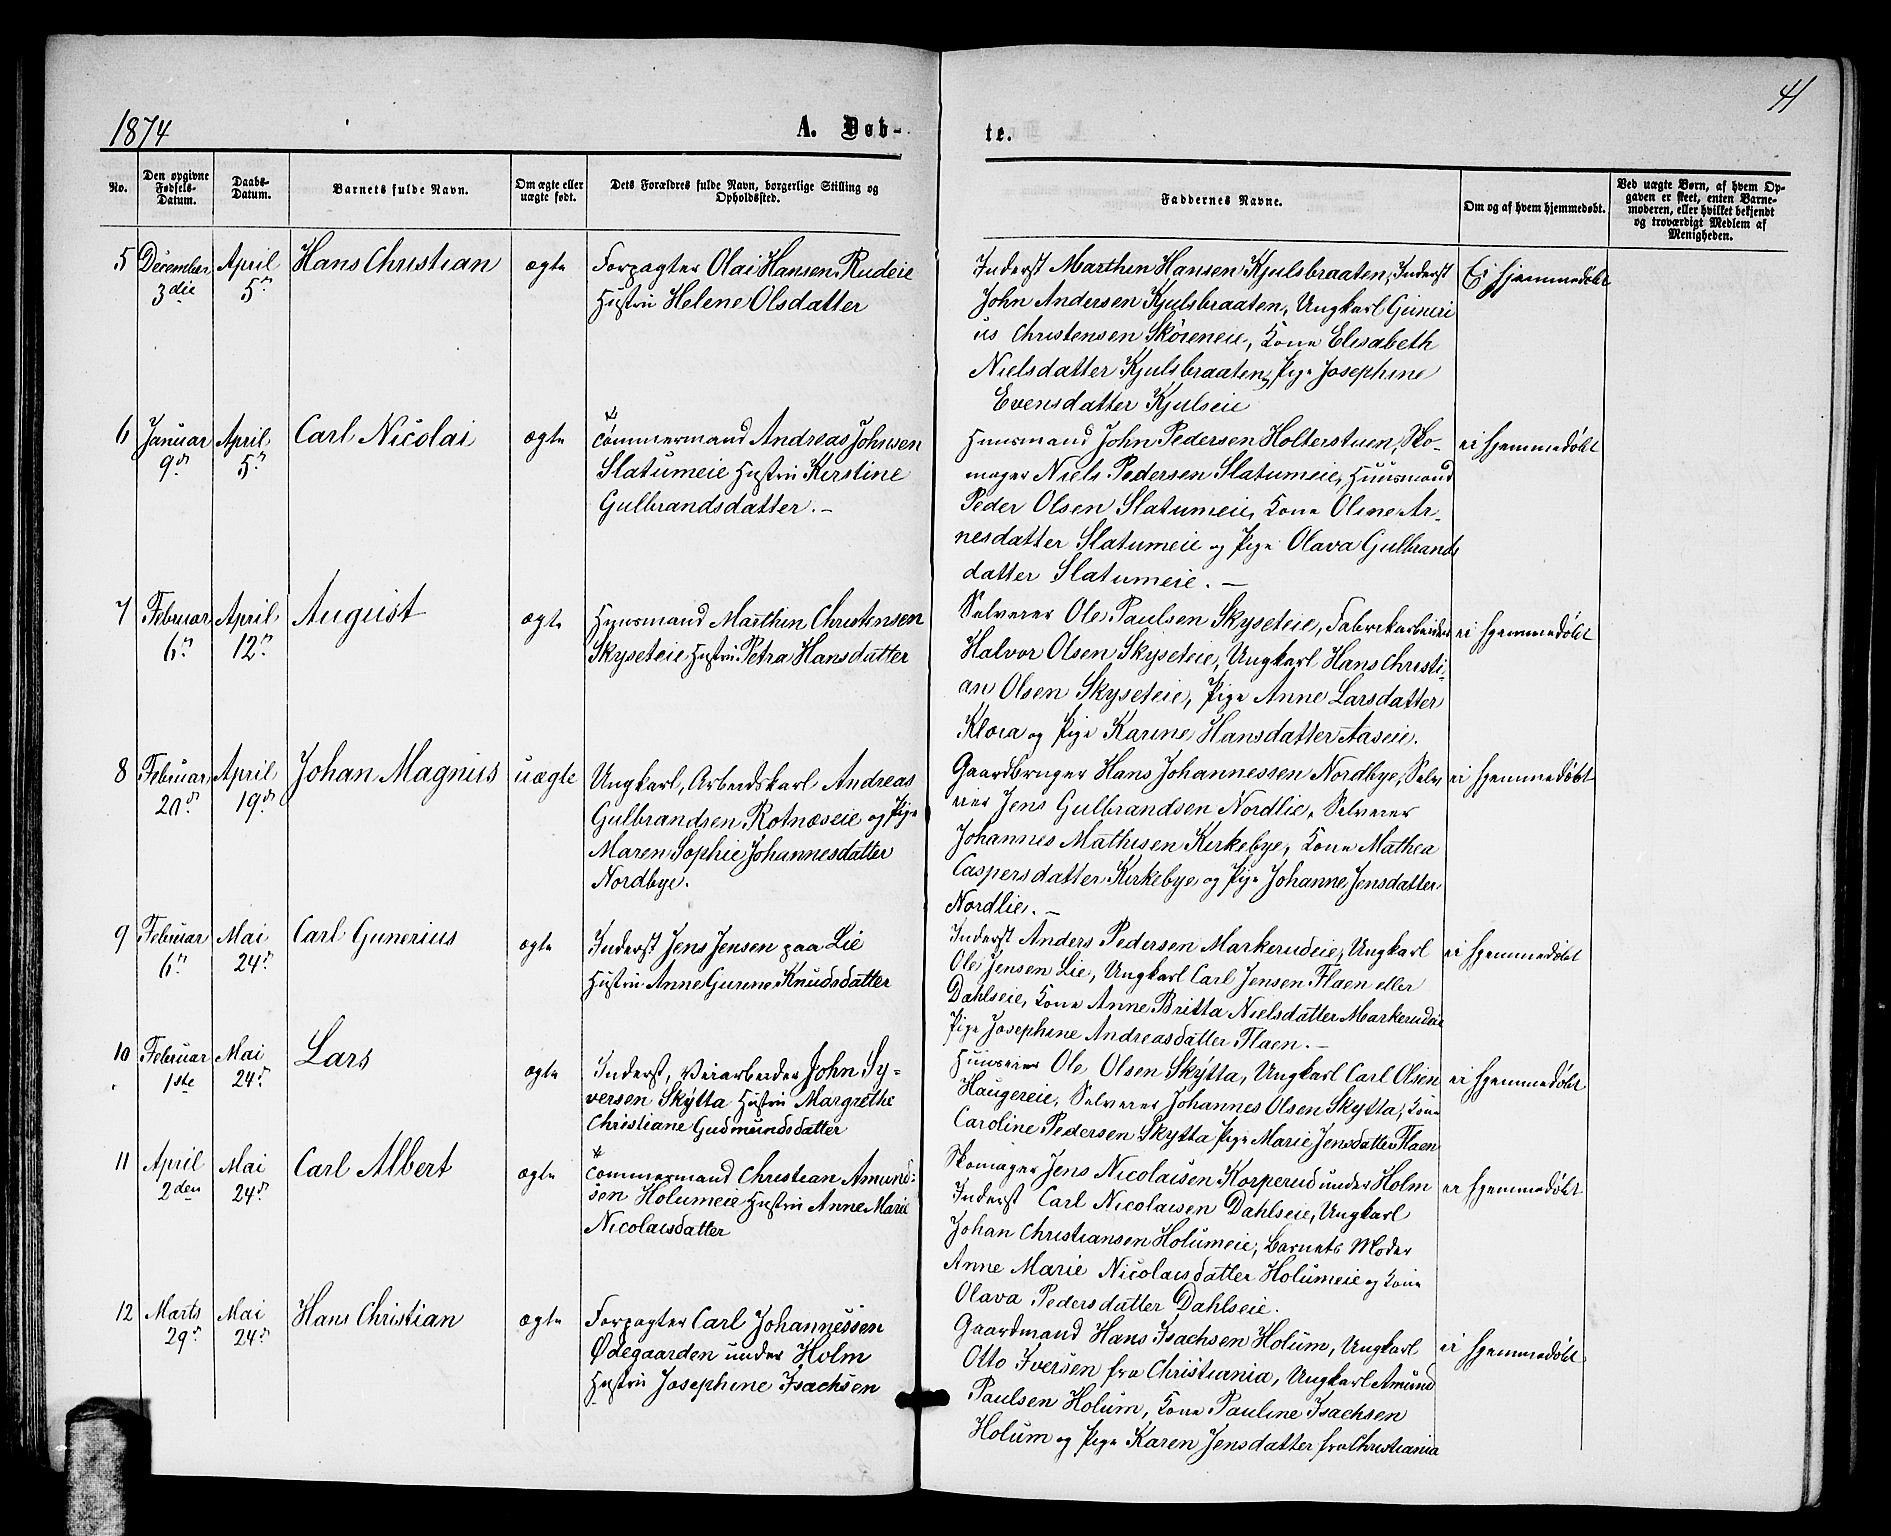 41
1874
A. Døb-
te.
No.
Den opgivne Fødsels-Datum.
Daabs-Datum.
Barnets fulde Navn.
Om ægte eller uægte født.
Dets Forældres fulde Navn, borgerlige Stilling og Opholdssted.
Faddernes Navne.
Om og af hvem hjemmedøbt.
Ved uægte Børn, af hvem Opgaven er skeet, enten Barnemoderen, eller hvilket bekjendt og troværdigt Medlem af Menigheden.
5 December 3die April 5te Hans Christian ægte
Forpagter Olai Hansen Rudeie
Hustru Helene Olsdatter
Inderst Marthin Hansen Kjulsbraaten, Inderst
John Andersen Kjulsbraaten, Ungkarl Guneri
us Christensen Skøieneie, Kone Elisabeth
Nielsdatter Kjulsbraaten, Pige Josephine
Evensdatter Kjulseie
Ei hjemmedøbt
6 Januar 9de April 5te Carl Nicolai ægte
Tømmermand Andreas Johnsen
Slatumeie Hustru Kirstine
Gulbrandsdatter. –
Huusmand John Pedersen Holterstuen, Sko-
mager Niels Pedersen Slatumeie, Huusmand
Peder Olsen Slatumeie, Kone Oline Ar-
nesdatter Slatumeie og Pige Olava Gulbrands
datter Slatumeie. –
ei hjemmedøbt
7 Februar 6te April 12te August ægte
Huusmand Marthin Christensen
Skyseteie Hustru Petra Hansdatter
Selveier Ole Paulsen Skyseteie, Fabrikarbeider
Halvor Olsen Skyseteie, Ungkarl Hans Christi-
an Olsen Skyseteie, Pige Anne Larsdatter
Kloia og Pige Karine Hansdatter Aaseie.
ei hjemmedøbt
8 Februar 20de April 19de Johan Magnus uægte
Ungkarl, Arbeidskarl Andreas
Gulbrandsen Rotnæseie og Pige
Maren Sophie Johannesdatter
Nordbye.
Gaardbruger Hans Johannessen Nordbye, Selv
eier Jens Gulbrandsen Nordlie, Selveier
Johannes Mathisen Kirkebye, Kone Mathea
Caspersdatter Kirkebye og Pige Johanne Jensdatter
Nordlie. –
ei hjemmedøbt
9 Februar 6te Mai 24de Carl Gunerius ægte
Inderst Jens Jensen paa Lie
Hustru Anne Gurine Knudsdatter
Inderst Anders Pedersen Markerudeie, Ungkarl
Ole Jensen Lie, Ungkarl Carl Jensen Flaen eller
Dahlseie, Kone Anne Britta Nielsdatter Markerudeie
Pige Josephine Andreasdatter Flaen. –
ei hjemmedøbt
10 Februar 1ste Mai 24de Lars ægte
Inderst, Veiarbeider John Sy-
versen Skytta Hustru Margrethe
Christiane Gudmundsdatter
Huuseier Ole Olsen Skytta, Ungkarl Carl Olsen
Haugereie, Selveier Johannes Olsen Skytta, Kone
Caroline Pedersen Skytta Pige Marie Jensdatter Flaen
ei hjemmedøbt
11 April 2den Mai 24de Carl Albert ægte
Tømmermand Christian Amund-
sen Holumeie Hustru Anne Marie
Nicolaisdatter
Skomager Jens Nicolaisen Korperud under Holm
Inderst Carl Nicolaisen Dahlseie, Ungkarl
Johan Christiansen Holumeie, Barnets Moder
Anne Marie Nicolaisdatter Holumeie og Kone
Olava Pedersdatter Dahlseie.
ei hjemmedøbt
12 Marts 29de Mai 24de Hans Christian ægte
Forpagter Carl Johannessen
Ødegaarden under Holm
Hustru Josephine Isachsen
Gaardmand Hans Isachsen Holum, Ungkarl
Otto Iversen fra Christiania, Ungkarl Amund
Paulsen Holum, Kone Pauline Isachsen
Holum og Pige Karen Jensdatter fra Christiania
ei hjemmedøbt